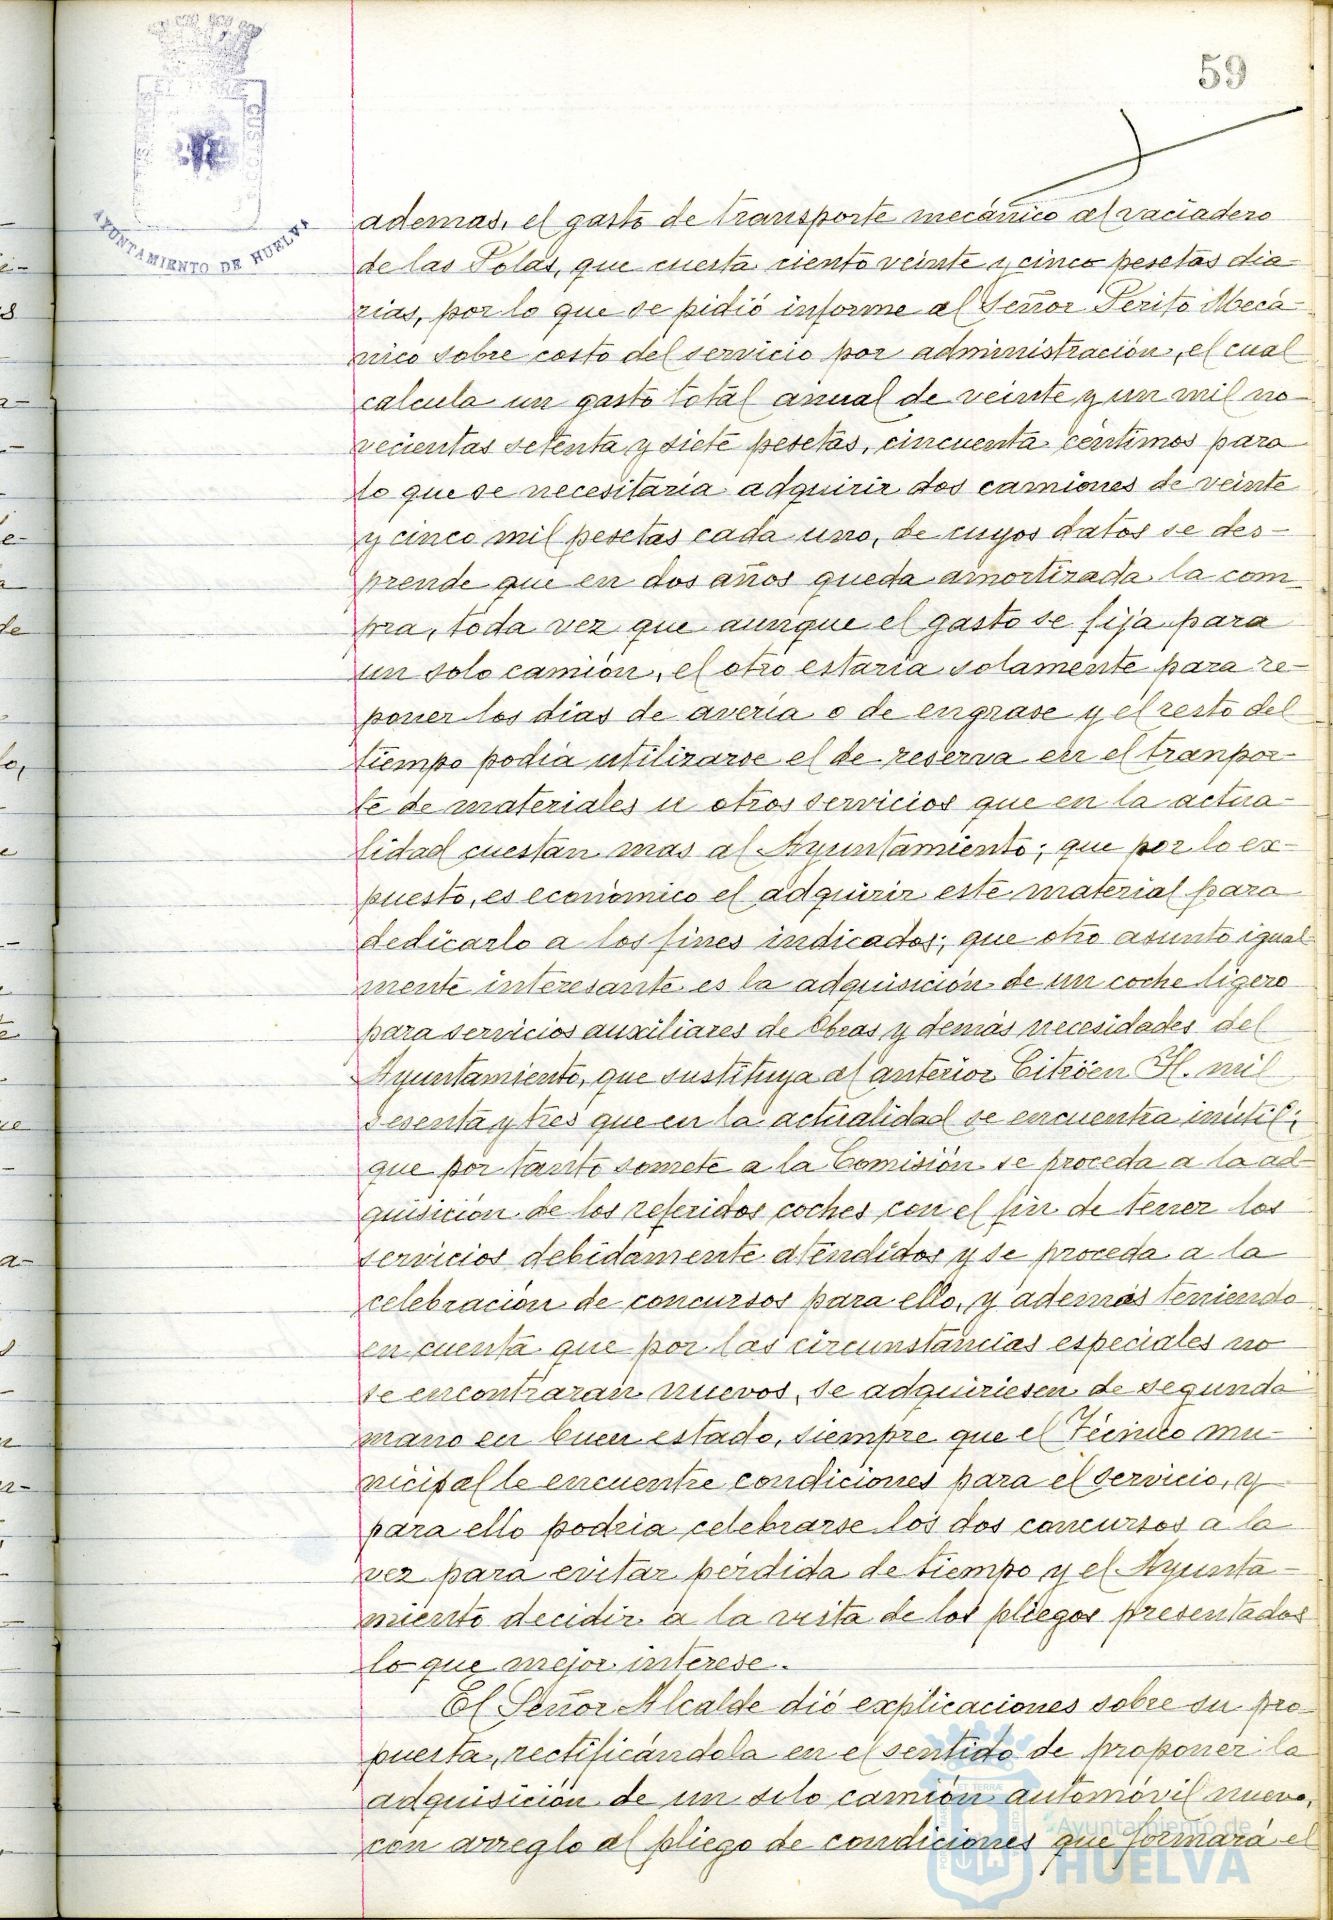 59
ET TERRÆ
CUSTODIA
AYUNTAMIENTO DE HUELVA
ademas, el gasto de transporte mecánico al vaciadero
de las Polas, que cuesta ciento veinte y cinco pesetas dia-
rias, por lo que se pidió informe al Señor Perito Mecá-
nico sobre costo del servicio por administración, el cual
calcula un gasto total anual de veinte y un mil no-
vecientas setenta y siete pesetas, cincuenta céntimos para
lo que se necesitaría adquirir dos camiones de veinte
y cinco mil pesetas cada uno, de cuyos datos se des-
prende que en dos años queda amortizada la com-
pra, toda vez que aunque el gasto se fija para
un solo camión, el otro estaría solamente para re-
poner los días de avería o de engrase y el resto del
tiempo podía utilizarse el de reserva en el tranpor-
te de materiales u otros servicios que en la actua-
lidad cuestan mas al Ayuntamiento; que por lo ex-
puesto, es económico el adquirir este material para
dedicarlo a los fines indicados; que otro asunto igual-
mente interesante es la adquisición de un coche ligero
para servicios auxiliares de Obras y demás necesidades del
Ayuntamiento, que sustituya al anterior Citröen H. mil
sesenta y tres que en la actualidad se encuentra inútil;
que por tanto somete a la Comisión se proceda a la ad-
quisición de los referidos coches con el fin de tener los
servicios debidamente atendidos y se proceda a la
celebración de concursos para ello, y además teniendo
en cuenta que por las circunstancias especiales no
se encontraran nuevos, se adquiriesen de segunda
mano en buen estado, siempre que el Técnico mu-
nicipal le encuentre condiciones para el servicio, y
para ello podria celebrarse los dos concursos a la
vez para evitar pérdida de tiempo y el Ayunta-
miento decidir a la vista de los pliegos presentados
lo que mejor interese.
El Señor Alcalde dió explicaciones sobre su pro-
puesta, rectificándola en el sentido de proponer la
adquisición de un solo camión automóvil nuevo,
con arreglo al pliego de condiciones que formará el
ET TERRÆ
Ayuntamiento de
HUELVA